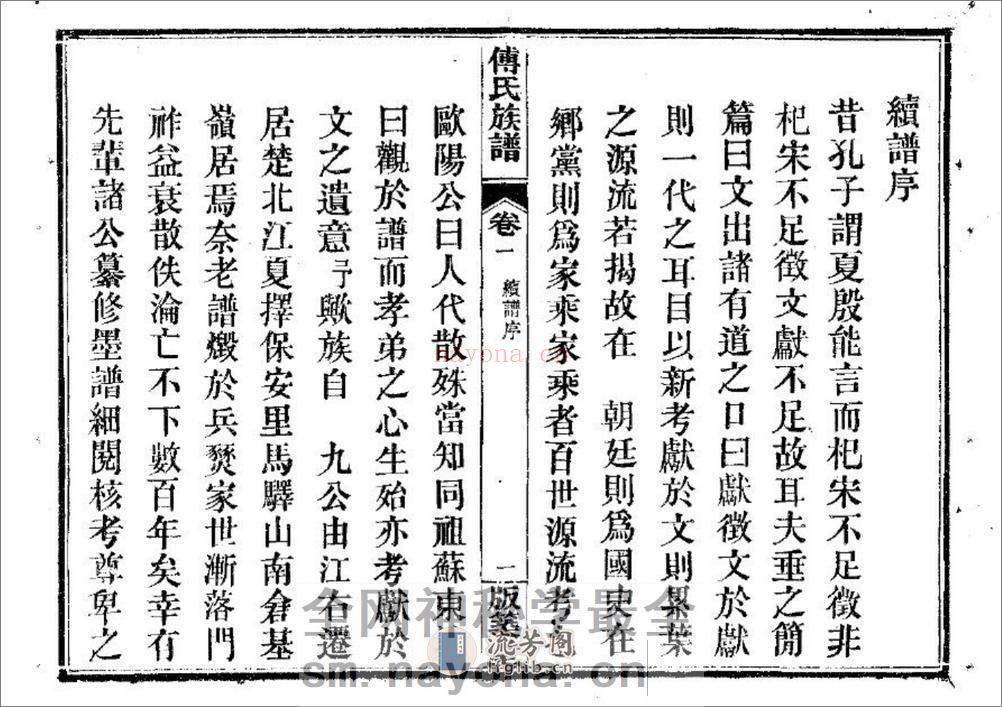 續譜序
昔孔子謂夏殷能言而杞宋不足徵非
杞宋不足徵文獻不足故耳夫垂之簡
篇曰文出諸有道之口曰獻徵文於獻
則一代之耳目以新考獻於文則累葉
之源流若揭故在 朝廷則爲國史在
鄉黨則爲家乘家乘者百世源流考
傅氏族譜
卷一
續譜序
一
版築
歐陽公曰人代散殊當知同祖蘇東
曰觀於譜而孝弟之心生始亦考獻於
文之遺意予歟族自 九公由江右遷
居楚北江夏擇保安里馬驛山南倉基
嶺居焉奈老譜燬於兵燹家世漸落門
祚益衰散佚淪亡不下數百年矣幸有
先輩諸公纂修墨譜細閱核考尊卑之
nayona.cn
全网神秘学最全
sm.nayona.cn
流芳閣
lfglib.cn